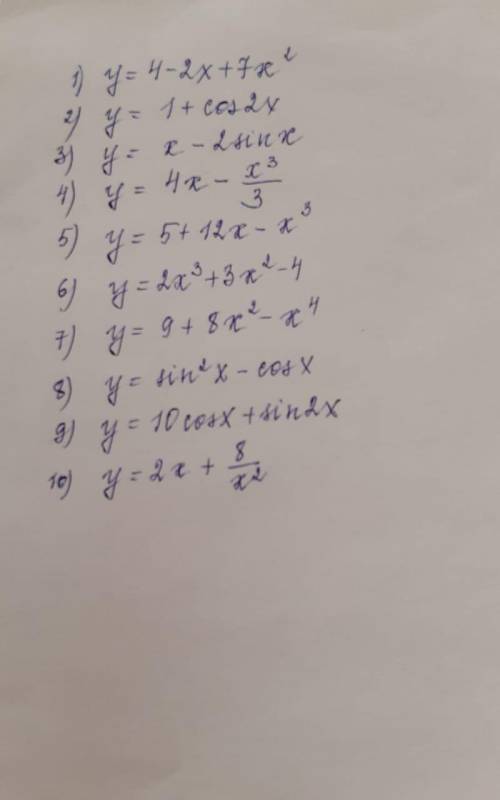 1) y = 4 - 2x + 7x²
2) y = 1 + cos2x
3) y = x - 2sinx
4) y = 4x - x³/3
5) y = 5 + 12x - x³
6) y = 2x³ + 3x² - 4
7) y = 9 + 8x² - x⁴
8) y = sin²x - cosx
9) y = 10cosx + sin2x
10) y = 2x + 8/x²